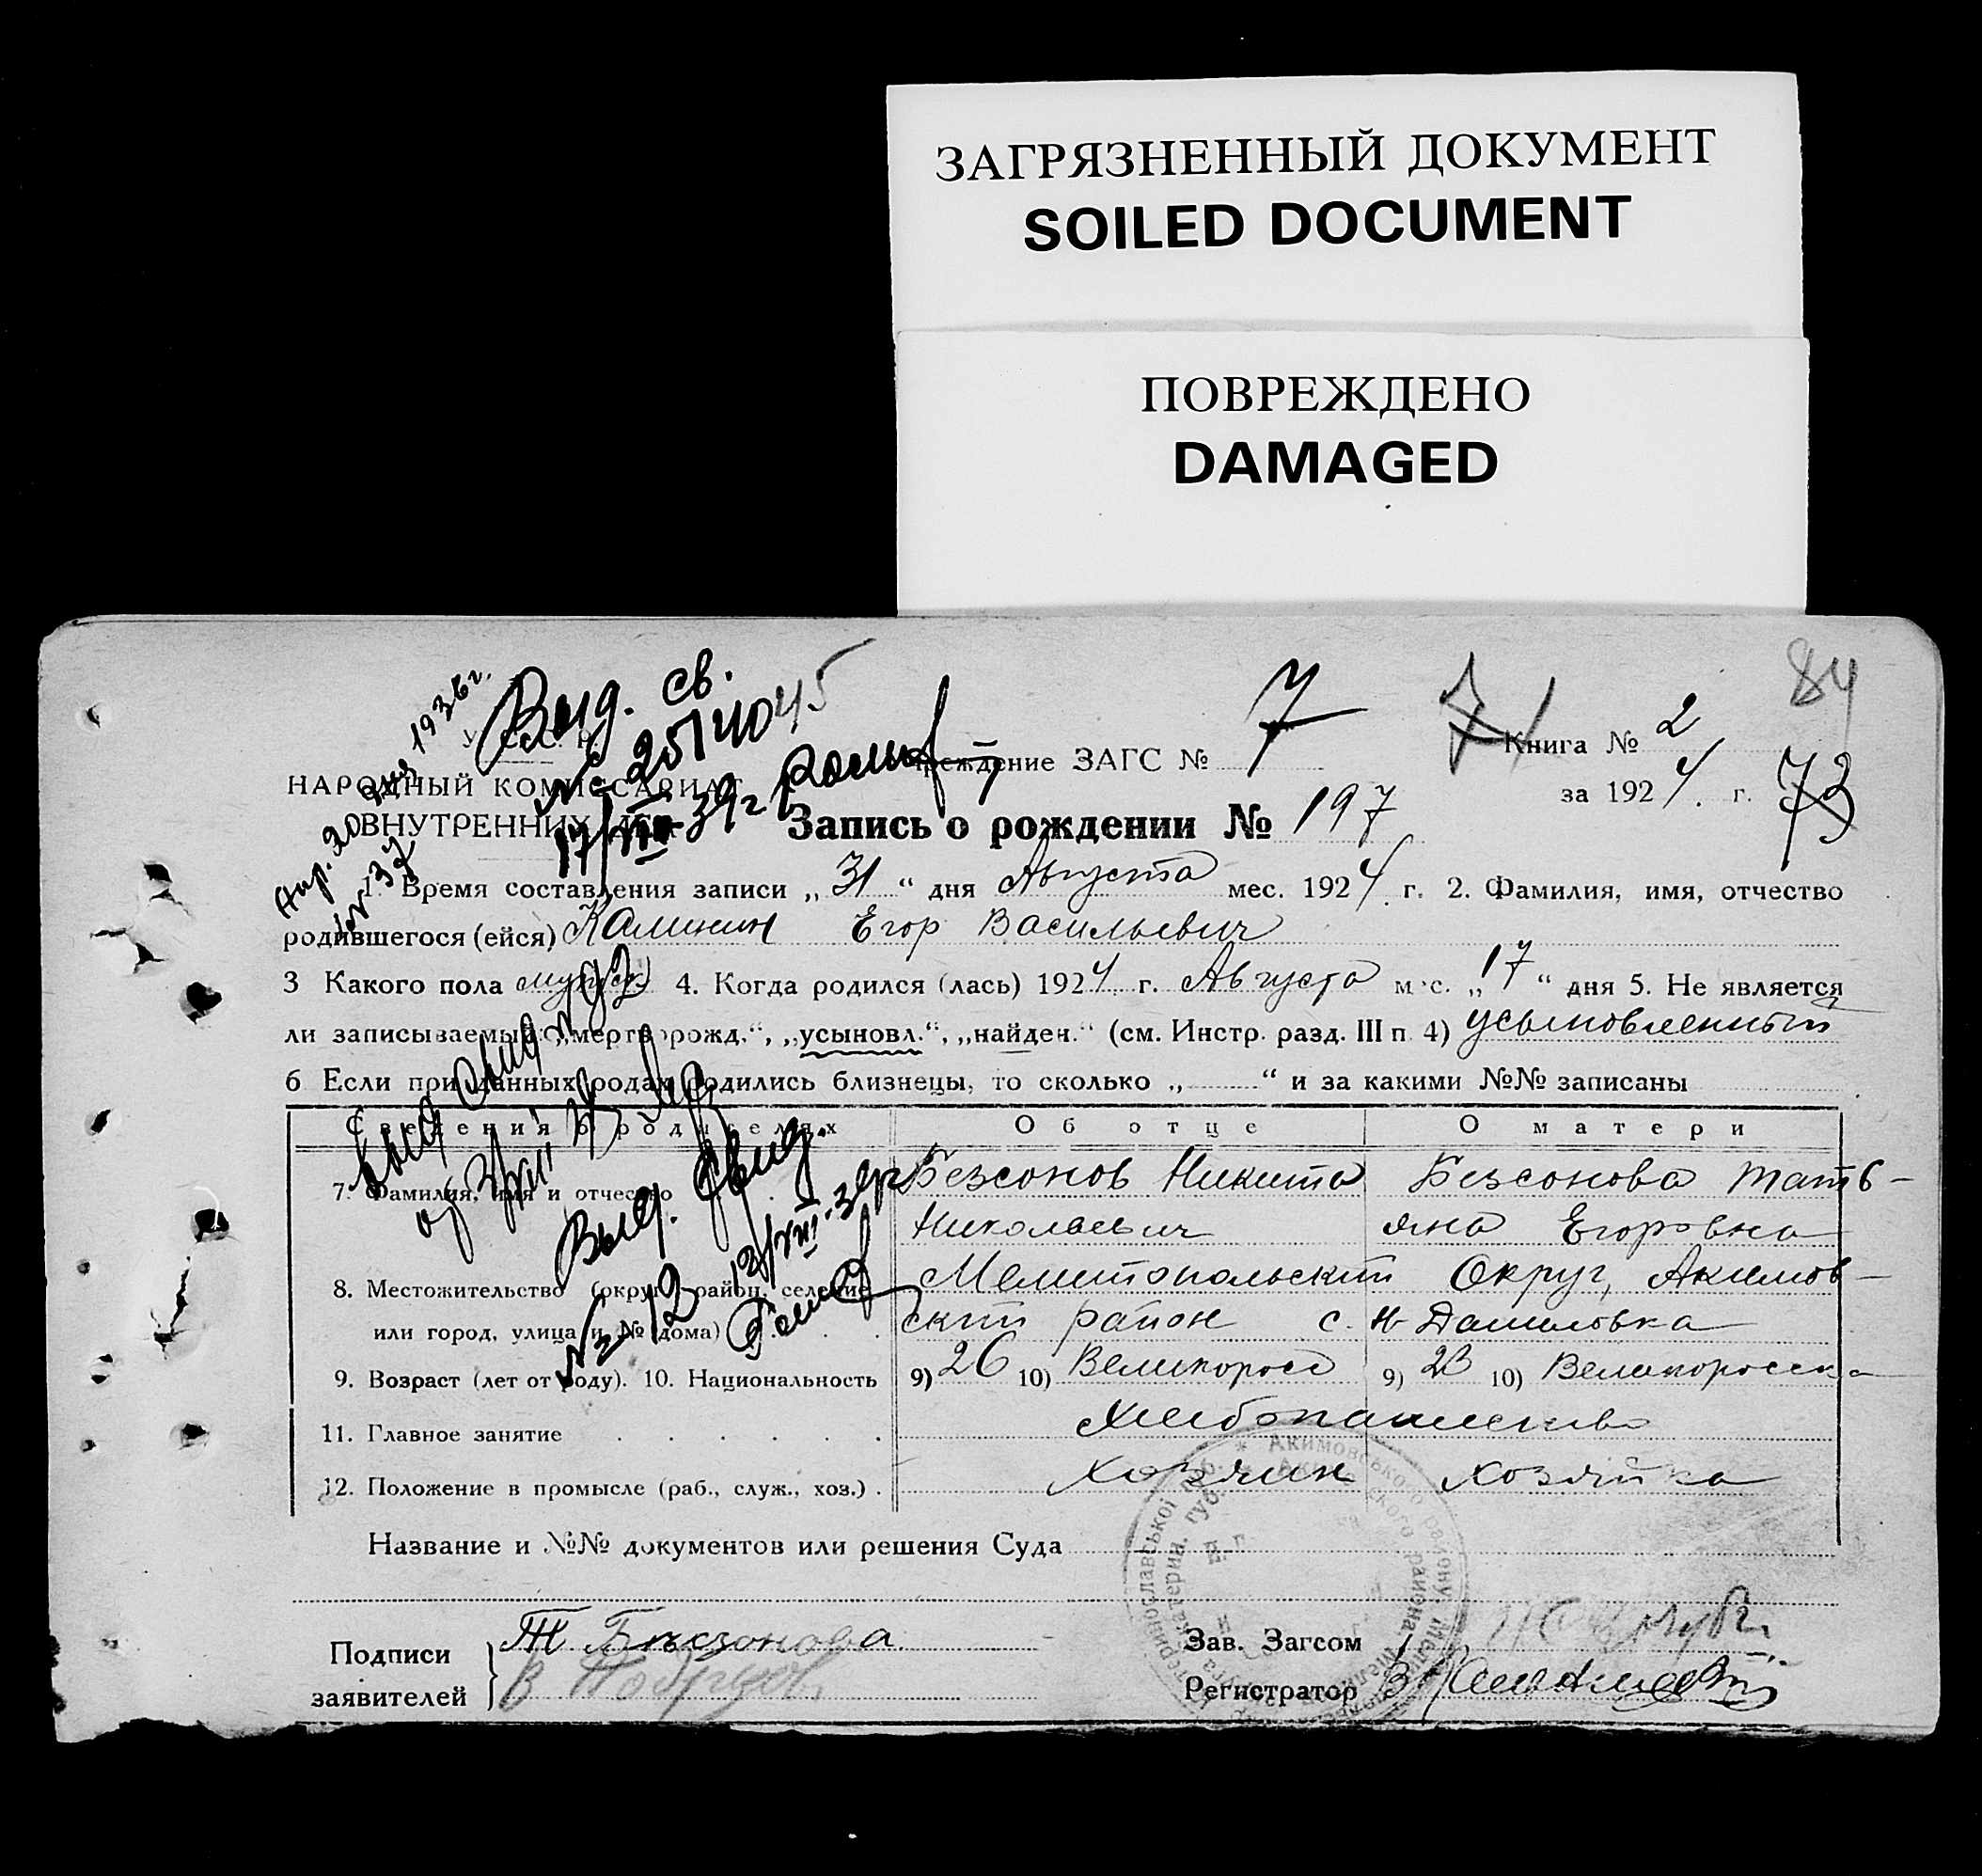 ЗАГРЯЗНЕННЫЙ ДОКУМЕНТ
SOILED DOCUMENT
ПОВРЕЖДЕНО
DAMAGED
84
Апр. 20 дня 1936 г.
№ 37
Выд. св.
№ 25141045
17/VIII-39 г.
У. С. С. Р.
НАРОДНЫЙ КОМИССАРИАТ
ВНУТРЕННИХ ДЕЛ
Учреждение ЗАГС № 7
Книга № 2
за 1924 г. 73
Запись о рождении № 197
1. Время составления записи „31“ дня Августа мес. 1924 г. 2. Фамилия, имя, отчество
родившегося (ейся) Калинин Егор Васильевич
3 Какого пола мужск. 4. Когда родился (лась) 1924 г. Августа мес. „17“ дня 5. Не является
ли записываемый: „мертворожд.“, „усыновл.“, „найден.“ (см. Инстр. разд. III п. 4) усыновленный
6 Если при данных родах родились близнецы, то сколько „ “ и за какими №№ записаны
Сведения о родителях Об отце О матери
7. Фамилия, имя и отчество Безсонов Никита Безсонова Тать-
Николаевич яна Егоровна
8. Местожительство (округ, район, селение Мелитопольский Округ, Акимов-
или город, улица и № дома) ский район с. Н-Даниловка
9. Возраст (лет от роду). 10. Национальность 9) 26 10) Великоросс 9) 23 10) Великоросска
11. Главное занятие Хлебопашество
12. Положение в промысле (раб., служ., хоз.) Хозяин Хозяйка
Выд. свид.
№ 12
Название и №№ документов или решения Суда
Подписи
заявителей
Т Безсонова
Зав. Загсом
Регистратор